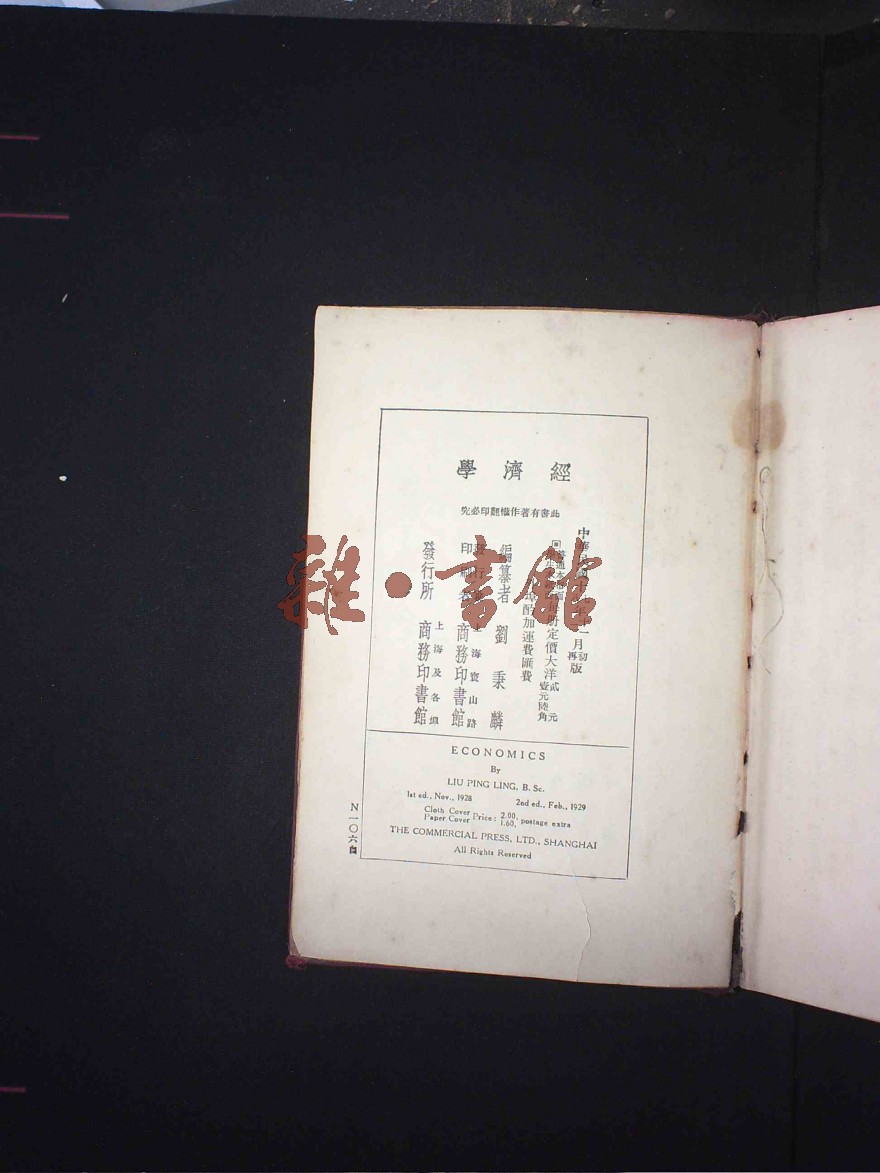 經濟學
此書有著作權翻印必究
月初再版
每册定價大洋貳元壹元陸角
酌加運費匯費
編纂者 劉秉麟
印刷 上海寶山路 商務印書館
發行所 上海及各埠 商務印書館
ECONOMICS
By
LIU PING LING, B. Sc.
1st ed., Nov., 1928 2nd ed., Feb., 1929
Cloth Cover Paper Cover Price: 2.00, 1.60, postage extra
THE COMMERCIAL PRESS, LTD., SHANGHAI
All Rights Reserved
N一〇六
雜·書館